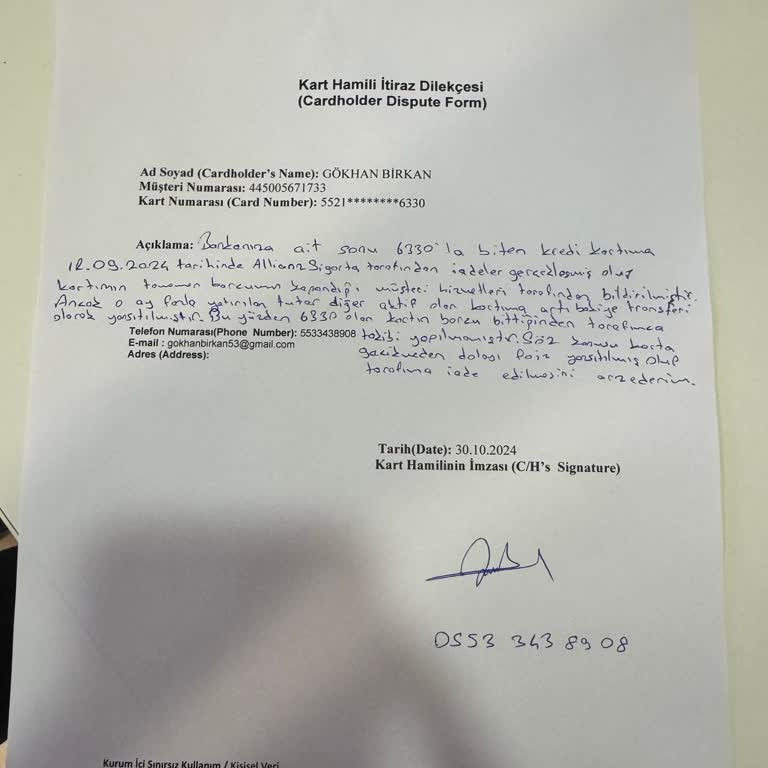 Kart Hamili İtiraz Dilekçesi
(Cardholder Dispute Form)
Ad Soyad (Cardholder's Name): GÖKHAN BİRKAN
Müşteri Numarası: 445005671733
Kart Numarası (Card Number): 5521********6330
Açıklama: Bankanıza ait sonu 6330'la biten kredi kartıma
12.09.2024 tarihinde Allianz Sigorta tarafından iadeler gerçekleşmiş olup
kartımın tamamen borcunun kapandığı müşteri hizmetleri tarafından bildirilmiştir.
Ancak o ay fazla yatırılan tutar diğer aktif olan kartıma artı bakiye transferi
olarak yansıtılmıştır. Bu yüzden 6330 olan kartın borcu bittiğinden tarafımca
Telefon Numarası(Phone Number): 5533438908 takibi yapılmamıştır. Söz konusu karta
E-mail : gokhanbirkan53@gmail.com gecikmeden dolayı faiz yansıtılmış olup
Adres (Address): tarafıma iade edilmesini arzederim.
Tarih(Date): 30.10.2024
Kart Hamilinin İmzası (C/H's Signature)
0553 343 8908
Kurum İçi Sınırsız Kullanım / Kişisel Veri